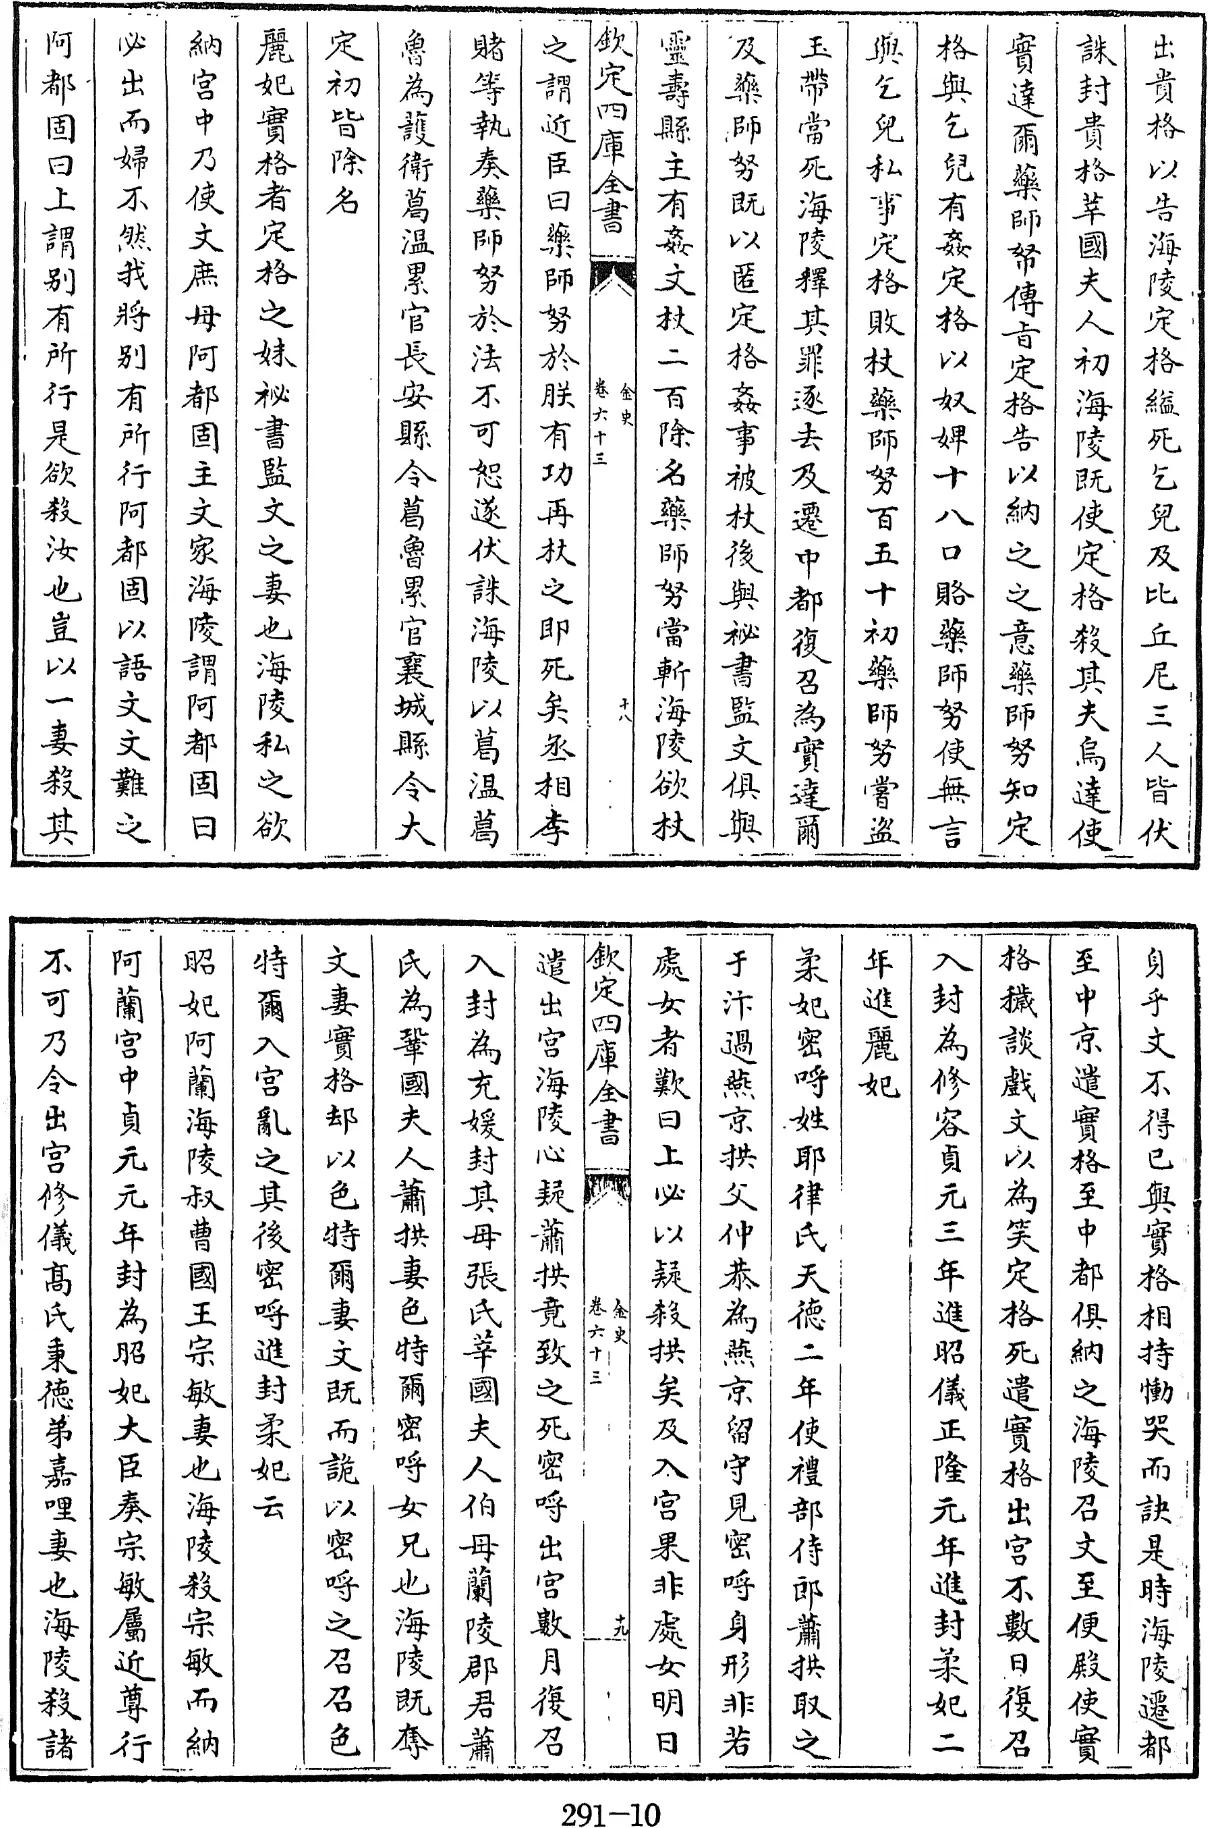 出貴格以告海陵定格縊死乞兒及比丘尼三人皆伏
誅封貴格莘國夫人初海陵既使定格殺其夫烏達使
實達爾藥師努傳㫖定格告以納之之意藥師努知定
格與乞兒有姦定格以奴婢十八口賂藥師努使無言
與乞兒私事定格敗杖藥師努百五十初藥師努嘗盜
玉帶當死海陵釋其罪逐去及遷中都復召為實達爾
及藥師努既以匿定格姦事被杖後與祕書監文俱與
靈壽縣主有姦文杖二百除名藥師努當斬海陵欲杖
欽定四庫全書
金史
卷六十三
十八
之謂近臣曰藥師努於朕有功再杖之即死矣丞相李
賭等執奏藥師努於法不可恕遂伏誅海陵以葛温葛
魯為護衛葛温累官長安縣令葛魯累官襄城縣令大
定初皆除名
麗妃實格者定格之妹祕書監文之妻也海陵私之欲
納宫中乃使文庶母阿都固主文家海陵謂阿都固曰
必出而婦不然我將别有所行阿都固以語文文難之
阿都固曰上謂别有所行是欲殺汝也豈以一妻殺其
身乎文不得已與實格相持慟哭而訣是時海陵遷都
至中京遣實格至中都俱納之海陵召文至便殿使實
格穢談戲文以為笑定格死遣實格出宫不數日復召
入封為修容貞元三年進昭儀正隆元年進封柔妃二
年進麗妃
柔妃密呼姓耶律氏天德二年使禮部侍郎蕭拱取之
于汴過燕京拱父仲恭為燕京留守見密呼身形非若
處女者歎曰上必以疑殺拱矣及入宫果非處女明日
欽定四庫全書
金史
卷六十三
十九
遣出宫海陵心疑蕭拱竟致之死密呼出宫數月復召
入封為充媛封其母張氏莘國夫人伯母蘭陵郡君蕭
氏為鞏國夫人蕭拱妻色特爾密呼女兄也海陵既奪
文妻實格却以色特爾妻文既而詭以密呼之召召色
特爾入宫亂之其後密呼進封柔妃云
昭妃阿蘭海陵叔曹國王宗敏妻也海陵殺宗敏而納
阿蘭宫中貞元元年封為昭妃大臣奏宗敏屬近尊行
不可乃令出宫修儀髙氏秉德弟嘉哩妻也海陵殺諸
291-10